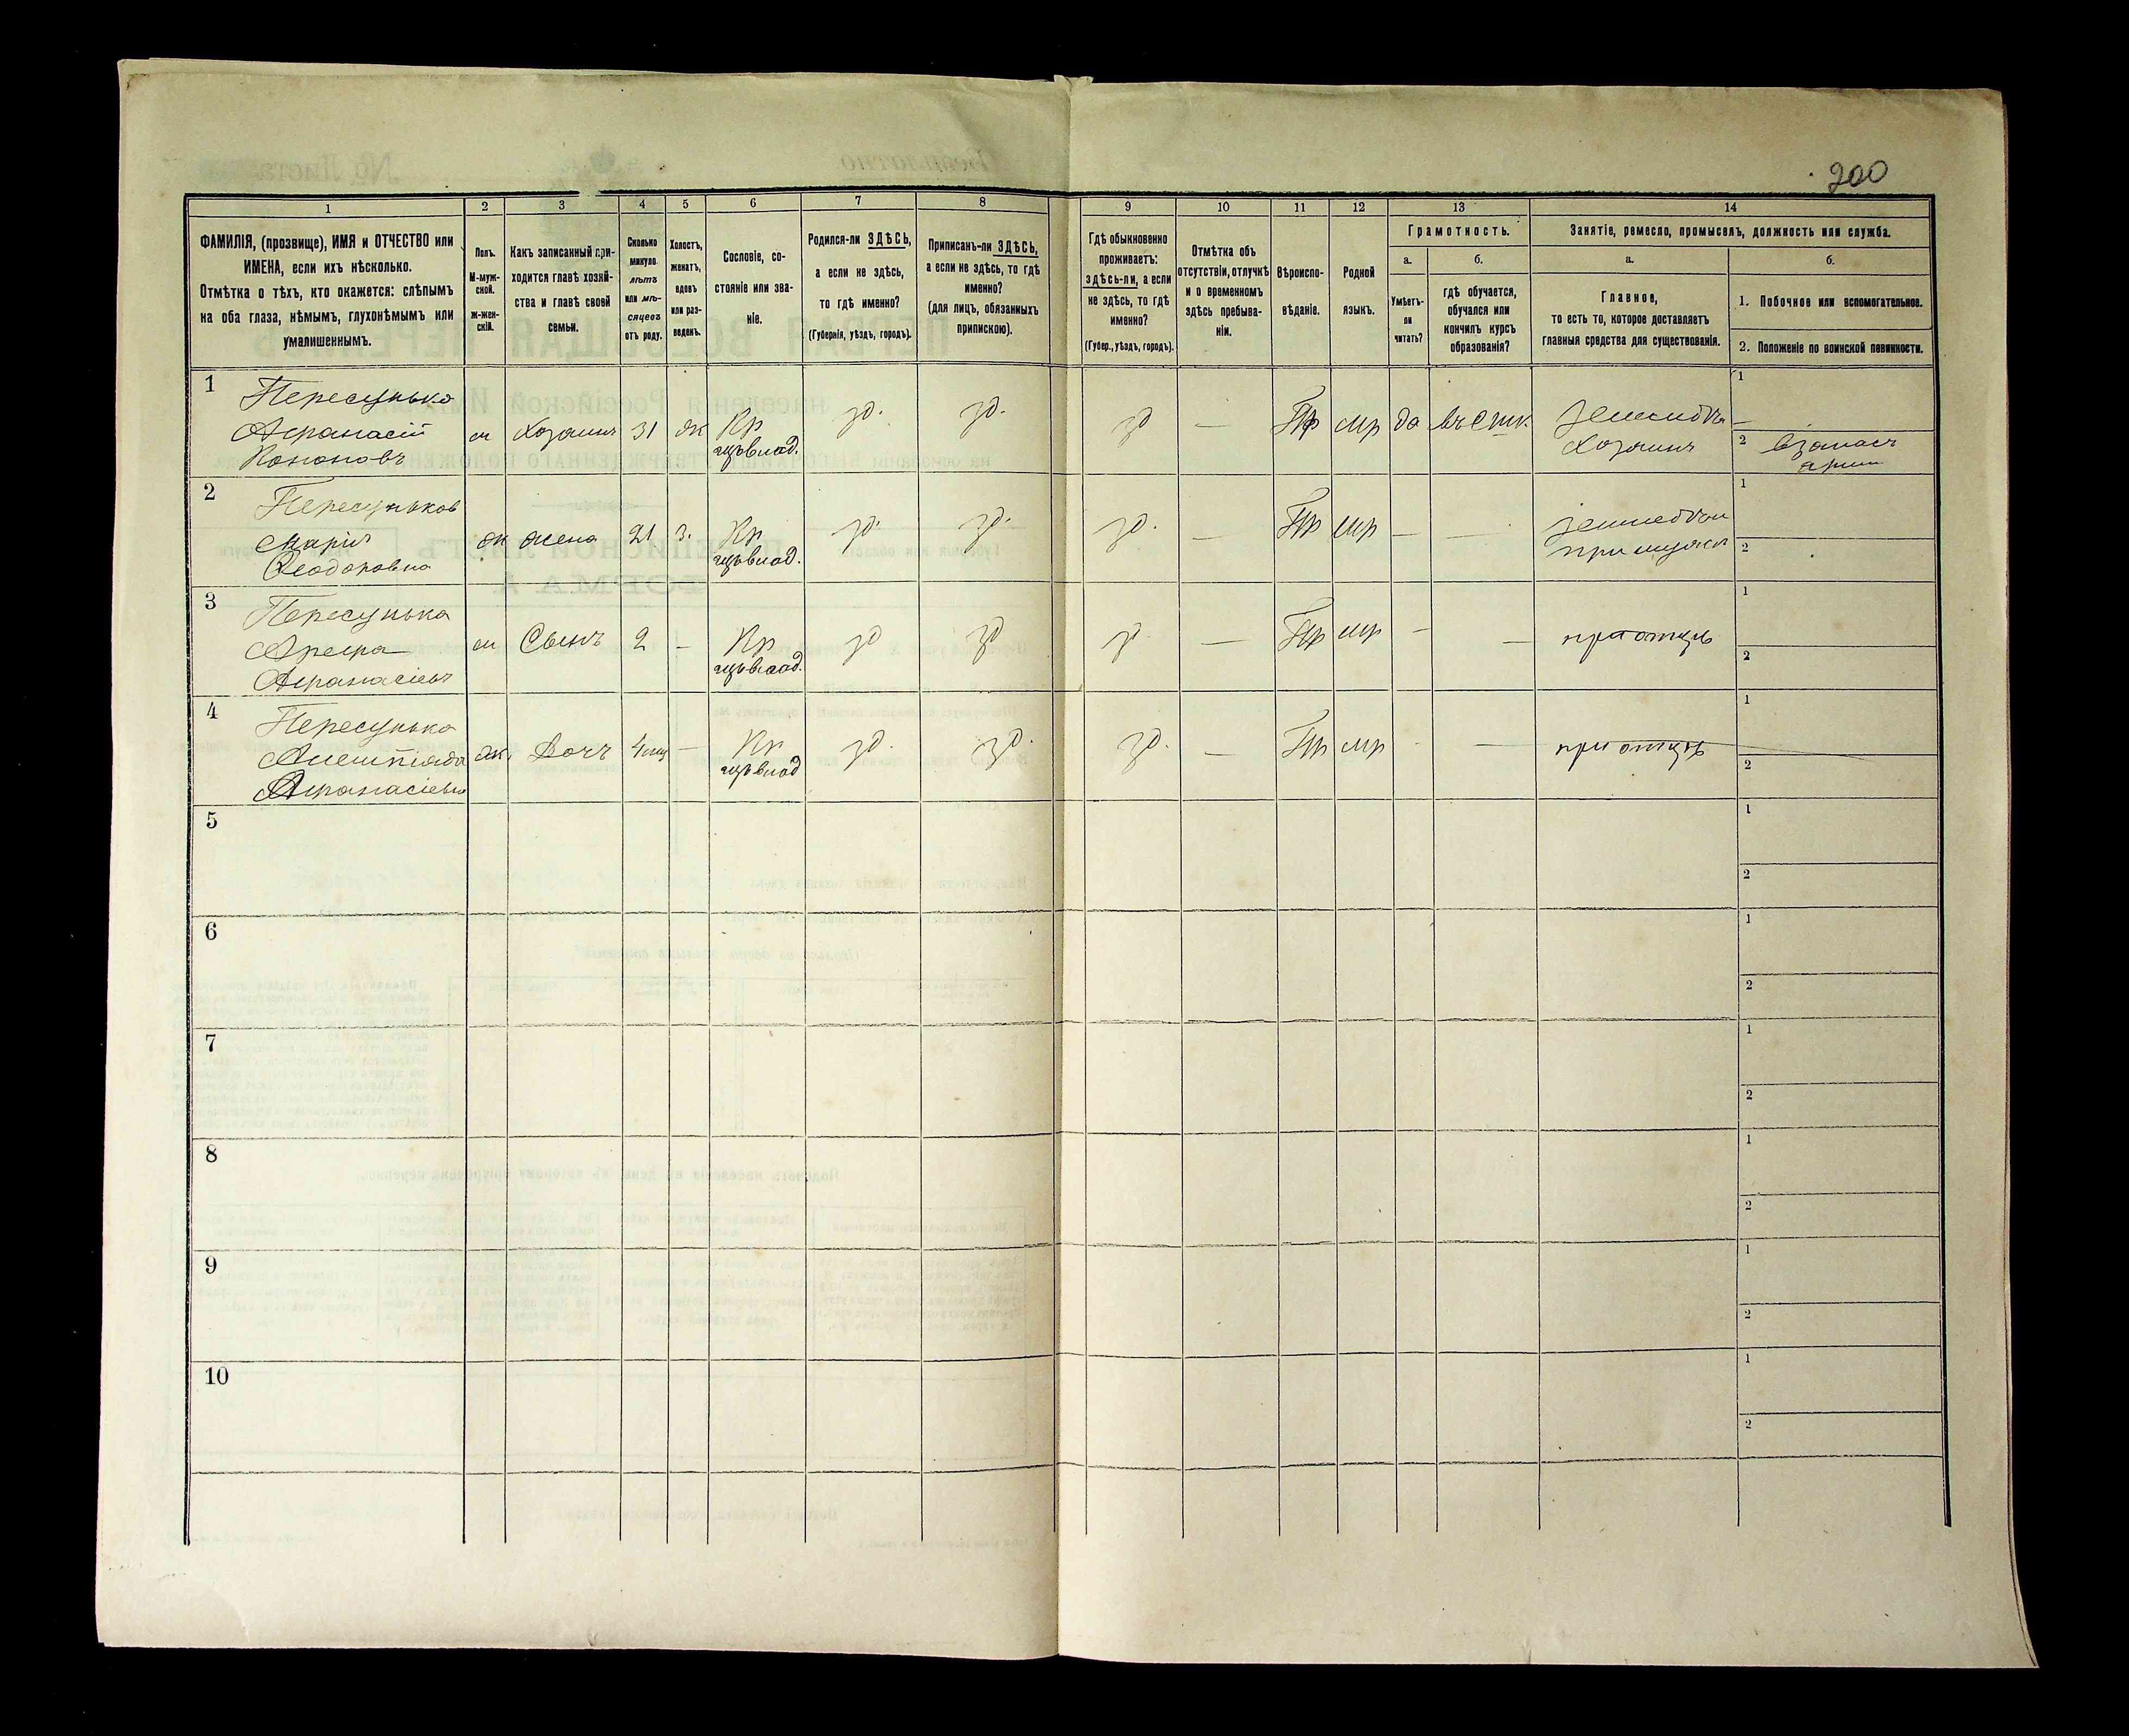 200
1 2 3 4 5 6 7 8 9 10 11 12 13 14
ФАМИЛІЯ, (прозвище), ИМЯ и ОТЧЕСТВО или
ИМЕНА, если ихъ нѣсколько.
Отмѣтка о тѣхъ, кто окажется: слѣпымъ
на оба глаза, нѣмымъ, глухонѣмымъ или
умалишеннымъ.
Полъ.
М-муж-
ской.
ж-жен-
скій.
Какъ записанный при-
ходится главѣ хозяй-
ства и главѣ своей
семьи.
Сколько
минуло
лѣтъ
или мѣ-
сяцевъ
отъ роду.
Холостъ,
женатъ,
вдовъ
или раз-
веденъ.
Сословіе, со-
стояніе или зва-
ніе.
Родился-ли ЗДѢСЬ,
а если не здѣсь,
то гдѣ именно?
(Губернія, уѣздъ, городъ).
Приписанъ-ли ЗДѢСЬ,
а если не здѣсь, то гдѣ
именно?
(для лицъ, обязанныхъ
припискою).
Гдѣ обыкновенно
проживаетъ:
здѣсь-ли, а если
не здѣсь, то гдѣ
именно?
(Губер., уѣздъ, городъ).
Отмѣтка объ
отсутствіи, отлучкѣ
и о временномъ
здѣсь пребыва-
ніи.
Вѣроиспо-
вѣданіе.
Родной
языкъ.
Грамотность.
а.
Умѣетъ-
ли
читать?
б.
гдѣ обучается,
обучался или
кончилъ курсъ
образованія?
Занятіе, ремесло, промыселъ, должность или служба.
а.
Главное,
то есть то, которое доставляетъ
главныя средства для существованія.
б.
1. Побочное или вспомогательное.
2. Положеніе по воинской повинности.
1 Пересунько
Афанасій м Хозяинъ 31 ж Кр зд. зд. зд — Пр мр да
Кононовъ
Хозяинъ
1 —
2
2
Марія ж жена 21 з. Кр зд. зд. зд. — Пр мр — —
Феодоровна
1
2
3 Пересунька
м Сынъ 2 — Кр зд зд зд — Пр мр — — при отцѣ
Афанасіевъ
1
2
4 Пересунька
ж. Дочь 4 мц — зд. зд. зд. — Пр мр - — при отцѣ
Афанасіевна
1
2
5 1
2
6 1
2
7 1
2
8 1
2
9 1
2
10 1
2